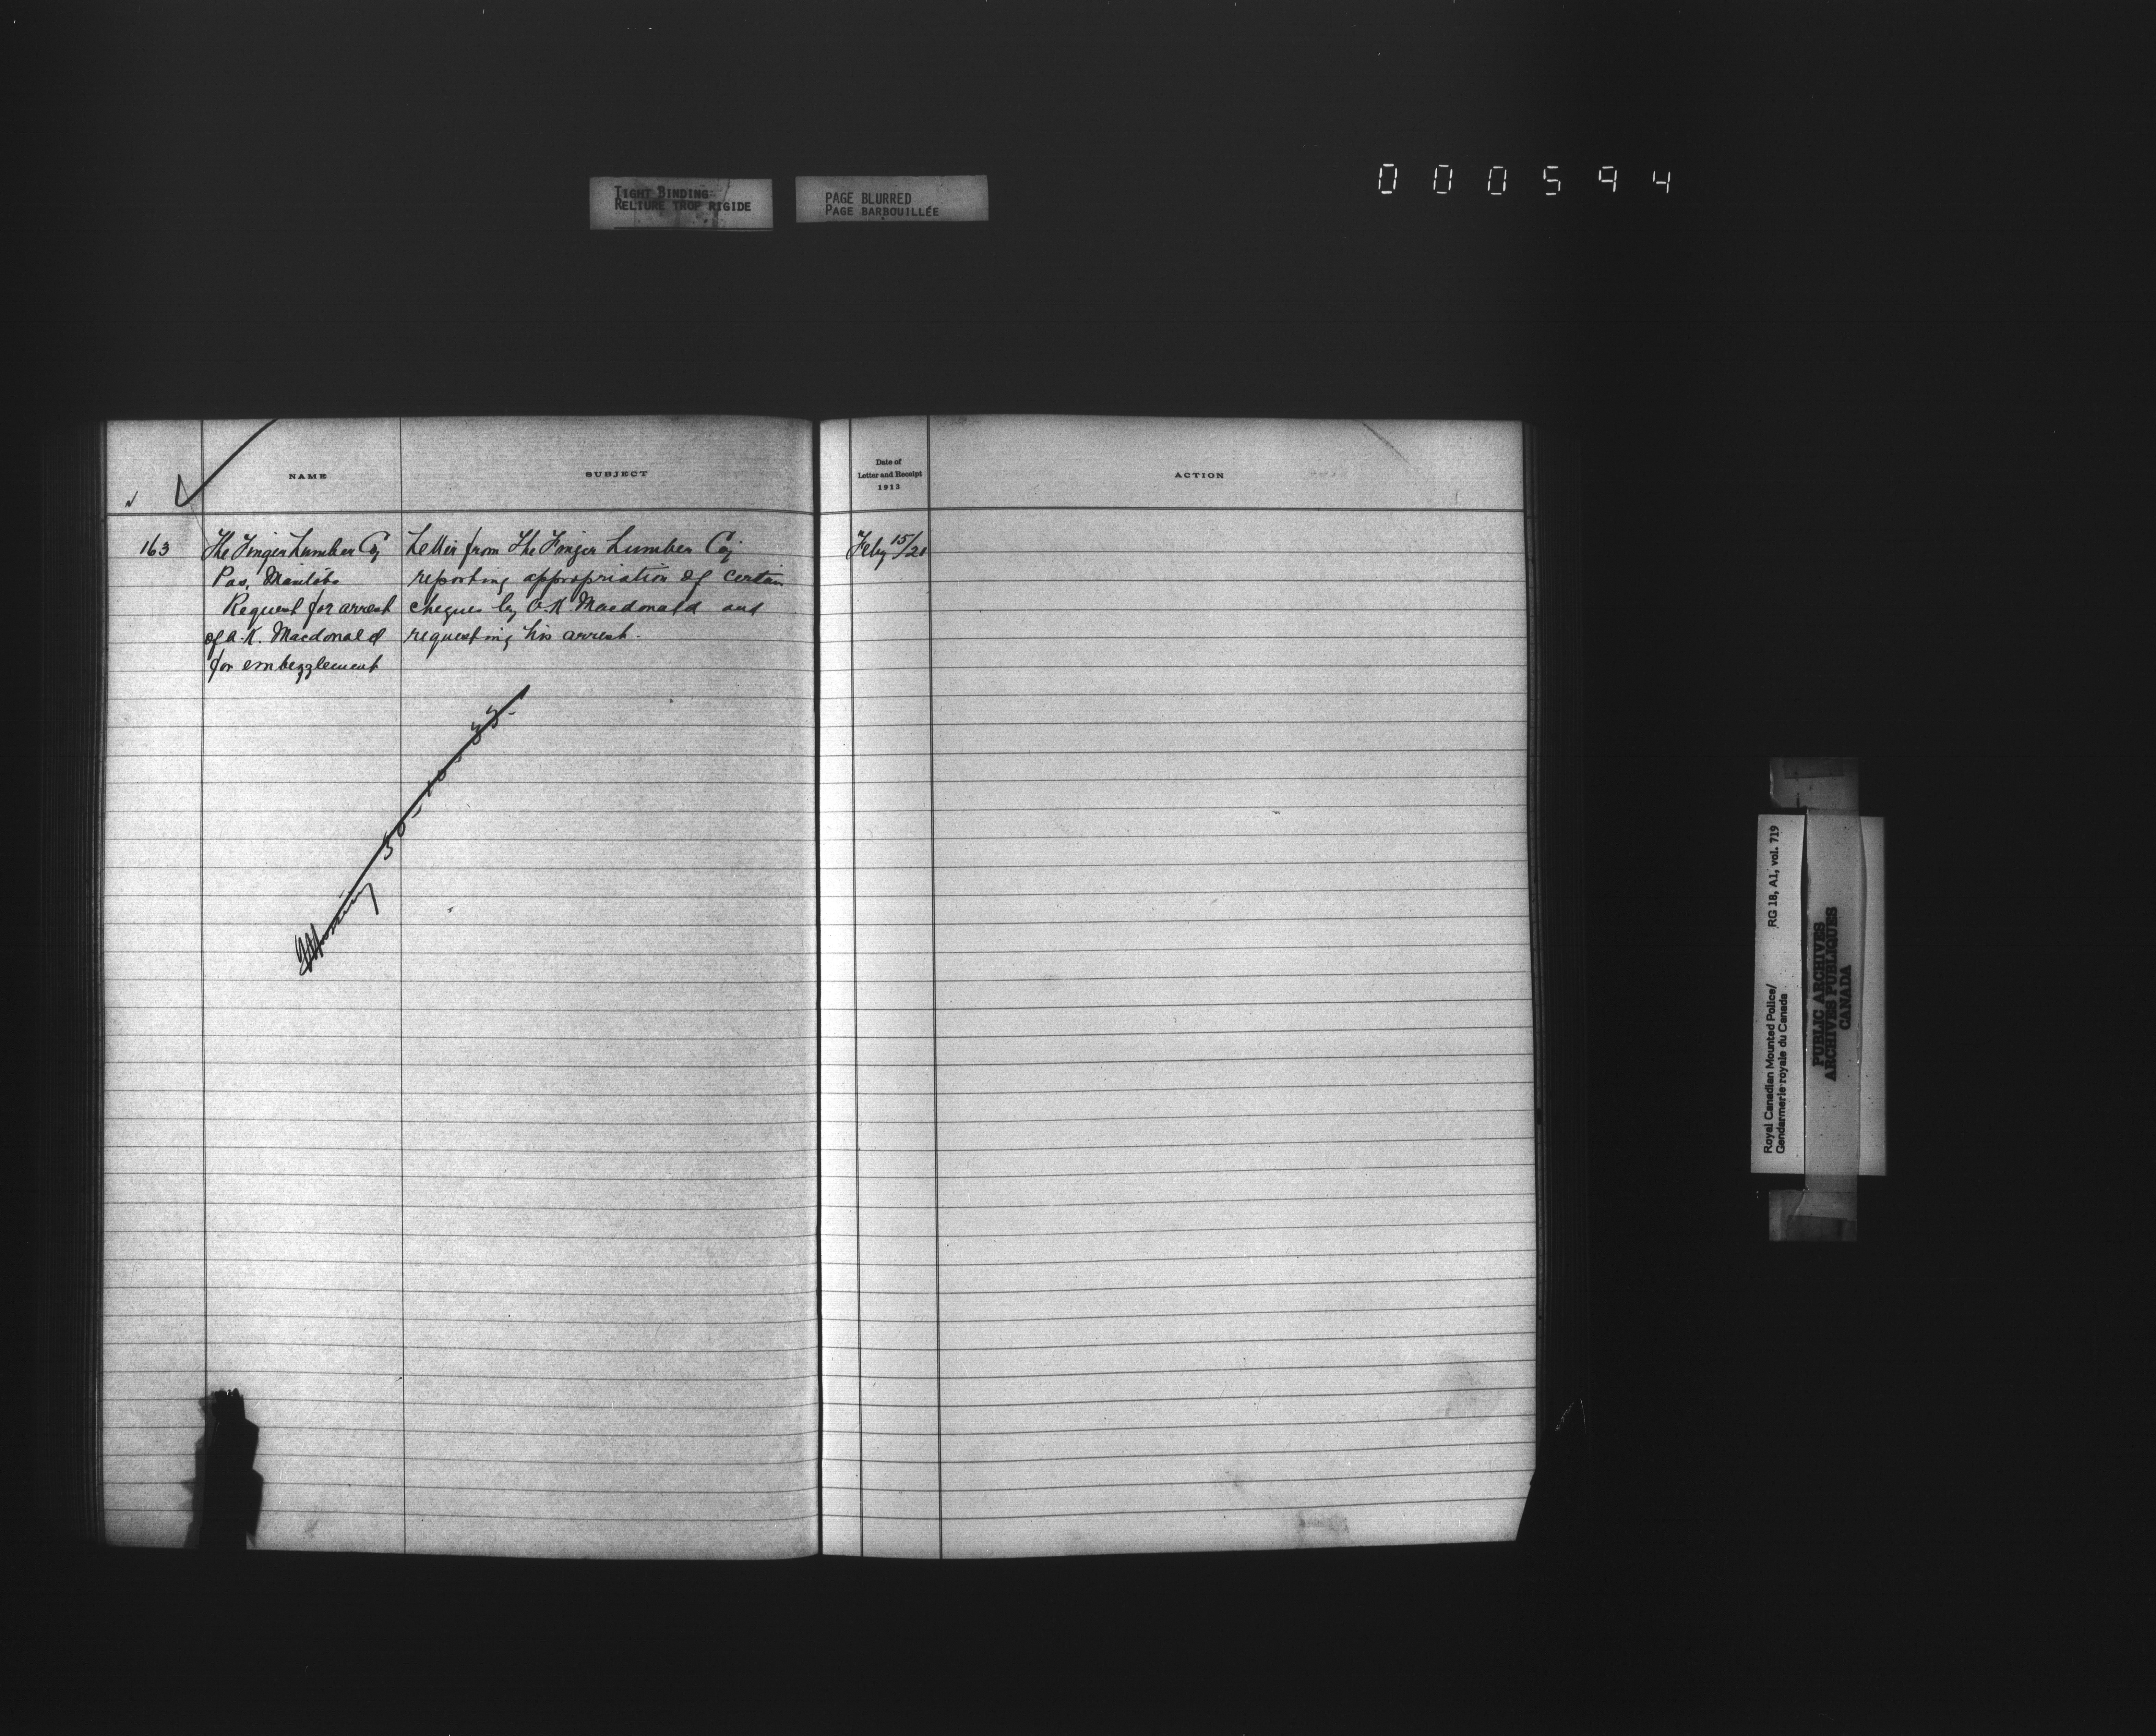 TIGHT BINDING
RELIURE TROP RIGIDE
PAGE BLURRED
PAGE BARBOUILLÉE
000594
NAME
SUBJECT
Date of
Letter and Receipt
1913
ACTION
163
The Finger Lumber Coy
Pas, Manitoba
Request for arrest
of A. K. Macdonald
for embezzlement
Letter from The Finger Lumber Coy
reporting appropriation of certain
cheques by A. K Macdonald and
requesting his arrest.
Feby 15/20
Missing 30-10-33-
Royal Canadian Mounted Police/
Gendarmerie royale du Canada
RG 18, A1, vol. 719
PUBLIC ARCHIVES
ARCHIVES PUBLIQUES
CANADA